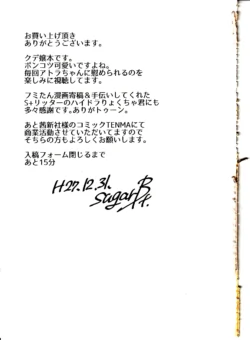 お買い上げ頂き
ありがとうございます。
クデ嬢本です。
ポンコツ可愛いですよね。
毎回アトラちゃんに慰められるのを
楽しみに視聴してます。
フミたん漫画寄稿＆手伝いしてくれた
S+リッターのハイドラりょくちゃ君にも
多々感謝です。ありがトゥーン。
あと茜新社様のコミックTENMAにて
商業活動させていただいてますので
そちらの方もよろしくお願いします。
入稿フォーム閉じるまで
あと15分
H27.12.31.